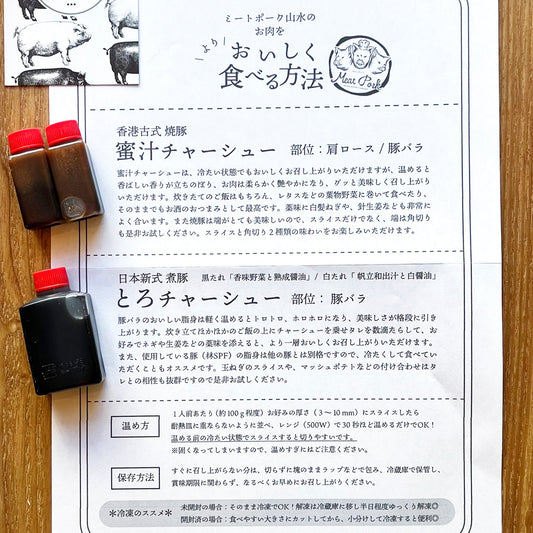 ミートポーク山水の
お肉を
より
おいしく
食べる方法
Meat Pork
香港古式 焼豚
蜜汁チャーシュー 部位：肩ロース / 豚バラ
蜜汁チャーシューは、冷たい状態でもおいしくお召し上がりいただけますが、温めると
香ばしい香りが立ちのぼり、お肉は柔らかく艶やかになり、グッと美味しく召し上がり
いただけます。炊きたてのご飯はもちろん、レタスなどの葉物野菜に巻いて食べたり、
そのままでもお酒のおつまみとして最高です。薬味に白髪ねぎや、針生姜なども非常に
よく合います。また焼豚は端がとても美味しいので、スライスだけでなく、端は角切り
も是非お試しください。スライスと角切り２種類の味わいをお楽しみいただけます。
日本新式 煮豚 黒たれ「香味野菜と熟成醤油」/ 白たれ「 帆立和出汁と白醤油」
とろチャーシュー 部位： 豚バラ
豚バラのおいしい脂身は軽く温めるとトロトロ、ホロホロになり、美味しさが格段に引き
上がります。炊き立てほかほかのご飯の上にチャーシューを乗せタレを数滴たらして、お
好みでネギや生姜などの薬味を添えると、より一層おいしくお召し上がりいただけます。
また、使用している豚（林SPF）の脂身は他の豚とは別格ですので、冷たくして食べてい
ただくこともオススメです。玉ねぎのスライスや、マッシュポテトなどの付け合わせはタ
レとの相性も抜群ですので是非お試しください。
温め方
１人前あたり（約100ｇ程度）お好みの厚さ（３〜10 mm）にスライスしたら
耐熱皿に重ならないように並べ、レンジ（500W）で 30 秒ほど温めるだけでOK！
温める前の冷たい状態でスライスすると切りやすいです。
※固くなってしまいますので、温めすぎにはご注意ください。
保存方法
すぐに召し上がらない分は、切らずに塊のままラップなどで包み、冷蔵庫で保管し、
賞味期限に関わらず、なるべくお早めにお召し上がりください。
＊冷凍のススメ＊
未開封の場合：そのまま冷凍でOK！解凍は冷蔵庫に移し半日程度ゆっくり解凍◎
開封済の場合：食べやすい大きさにカットしてから、小分けして冷凍すると便利◎